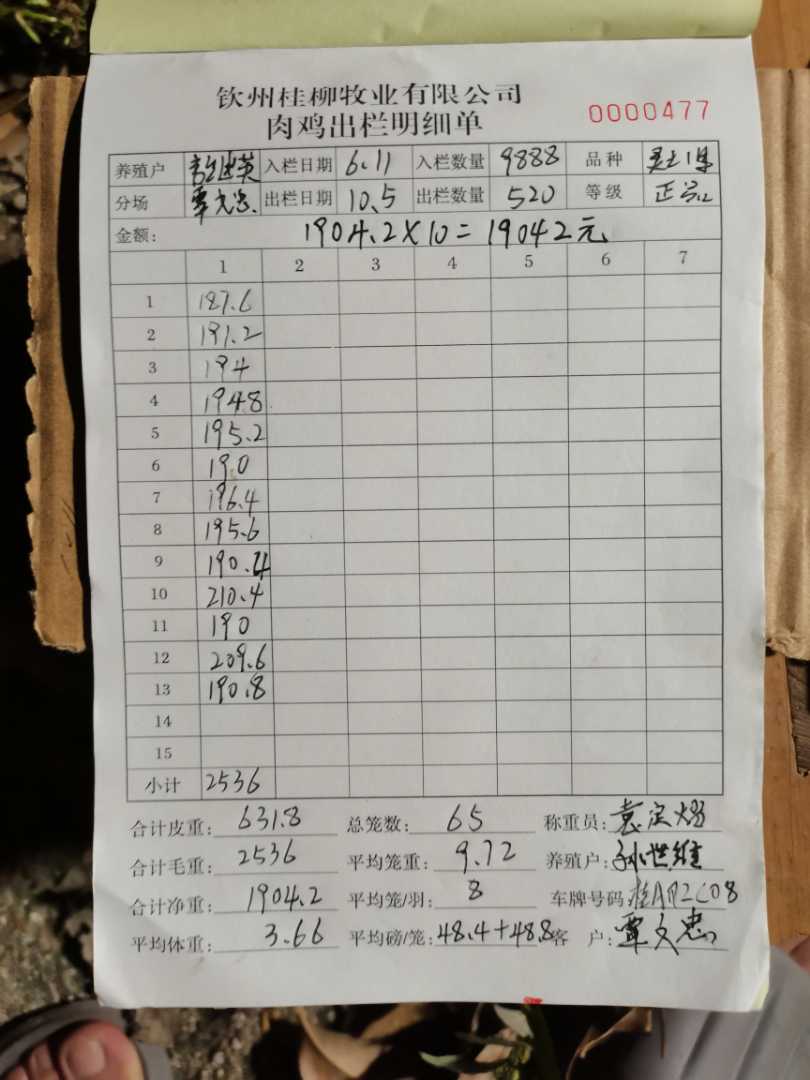 钦州桂柳牧业有限公司
肉鸡出栏明细单 0000477
养殖户 入栏日期 6.11 入栏数量 9888 品种
分场 覃文忠 出栏日期 10.5 出栏数量 520 等级 正品
金额: 1904.2×10=19042元
1 2 3 4 5 6 7
1 187.6
2 191.2
3 194
4 194.8
5 195.2
6 190
7 196.4
8 195.6
9 190.4
10 210.4
11 190
12 209.6
13 190.8
14
15
小计 2536
合计皮重: 631.8 总笼数: 65 称重员:
合计毛重: 2536 平均笼重: 9.72 养殖户: 孙世维
合计净重: 1904.2 平均笼/羽: 8 车牌号码
平均体重: 3.66 平均磅/笼: 48.4+48.8 客户: 覃文忠